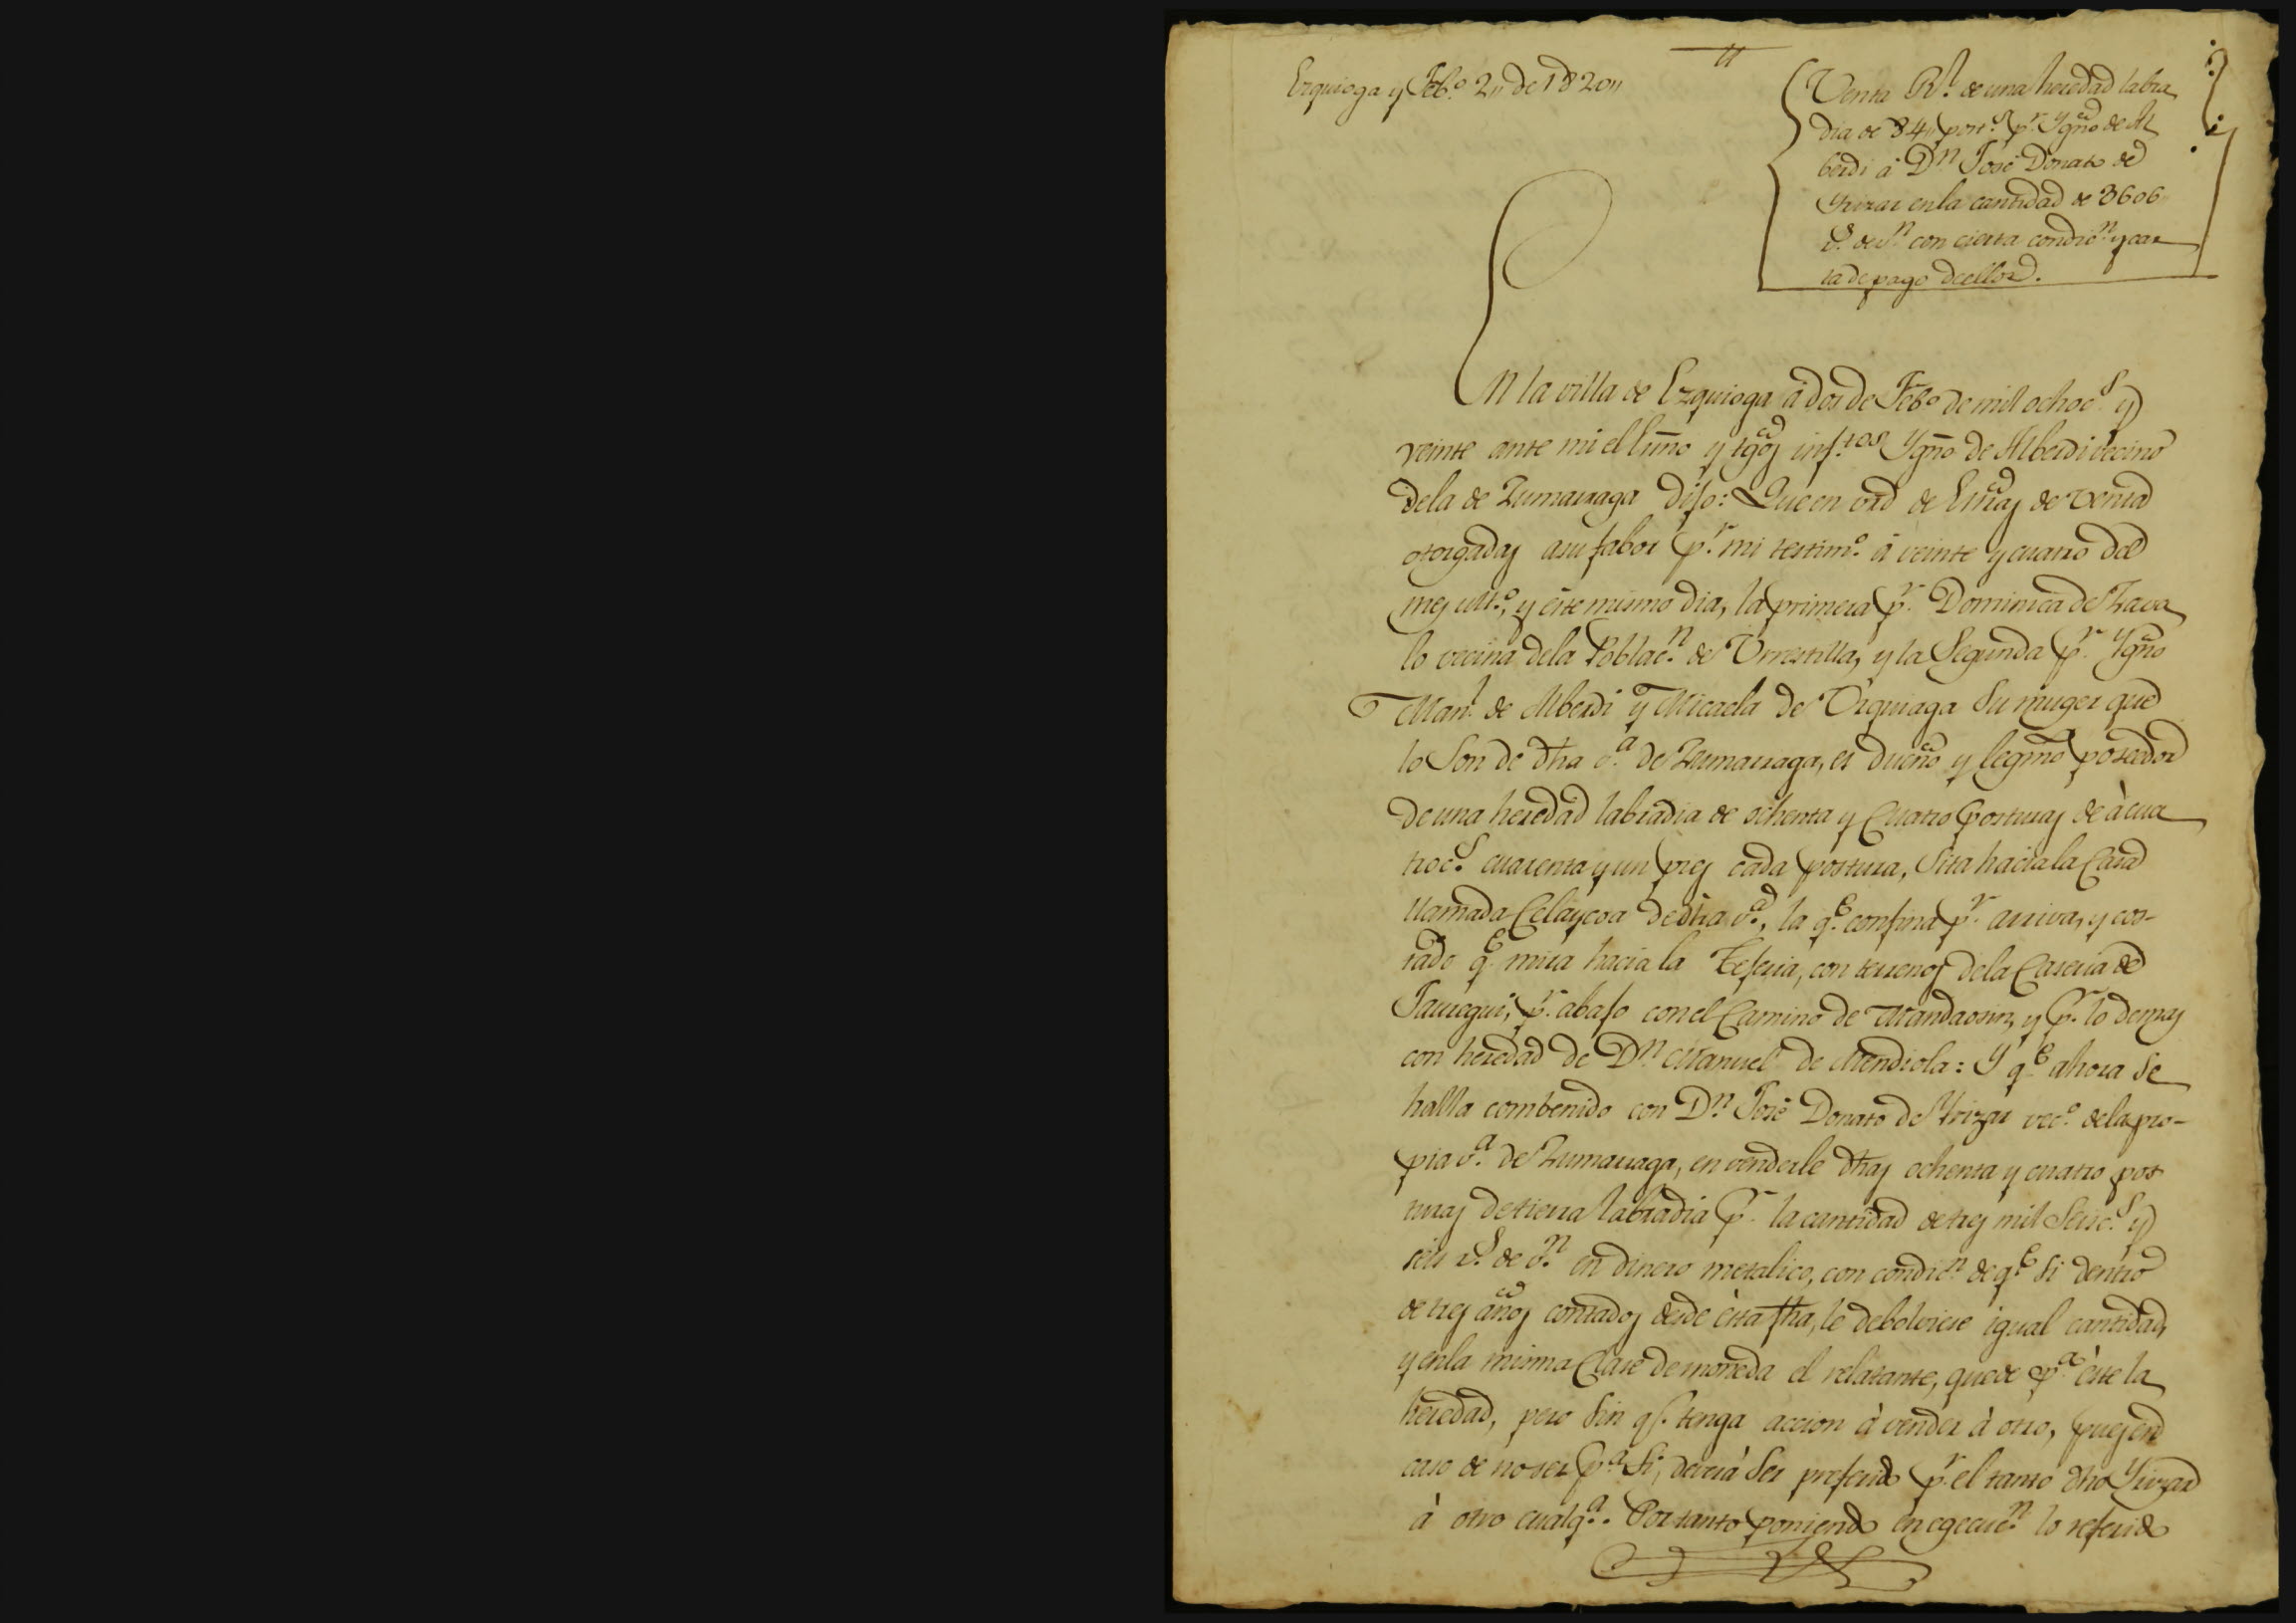 Ezquioga y Feb.º 2,, de 1820,,
Venta R.l de una heredad labra
dia de 84,, post.s p.r Ygño de Al
berdi á D.n José Donato de
Yrizar en la cantidad de 3606
r.s de v.n con cierta condic.n y car
ta de pago de ellos.
En la villa de Ezquioga á dos de Feb.º de mil ochoc.s y
veinte ante mi el Essno y tgos infros Ygño de Alberdi vecino
de la de Zumarraga Dijo: Que en vrd de Essras de venta
otorgadas a su fabor p.r mi testim.º á veinte y cuatro del
mes ult.º, y éste mismo dia, la primera p.r Dominica de Zava
lo vecina de la Poblac.n de Urrestilla, y la Segunda p.r Ygño
Man.l de Alberdi y Micaela de Urquiaga Su muger que
lo Son de dha v.a de Zumarraga, es dueño y legmo poseedor
de una heredad labradia de ochenta y Cuatro posturas de à cua
troc.s cuarenta y un pies cada postura, Sita hacia la Casa
llamada Celaycoa de dha v.a, la q.e confina p.r arriva, y cos-
tado q.e mira hacia la Tejeria, con terrenos de la Caseria de
Jauregui, p.r abajo con el Camino de Arandaosin, y p.r lo demas
con heredad de D.n Manuel de Mendiola: Y q.e ahora Se
halla combenido con D.n José Donato de Yrizar vec.º de la pro-
pia v.a de Zumarraga, en venderle dhas ochenta y cuatro pos
turas de tierra labradia p.r la cantidad de tres mil Seisc.s y
seis r.s de v.n en dinero metalico, con condic.n de q.e Si dentro
de tres años contados desde ésta fha, le debolviese igual cantidad,
y en la misma Clase de moneda el relatante, quede p.a éste la
heredad, pero Sin q.e tenga accion à vender à otro, pues en
caso de no ser p.a Si, deverà Ser preferido p.r el tanto dho Yrizar
à otro cualq.a. Por tanto poniendo en egecuc.n lo referido